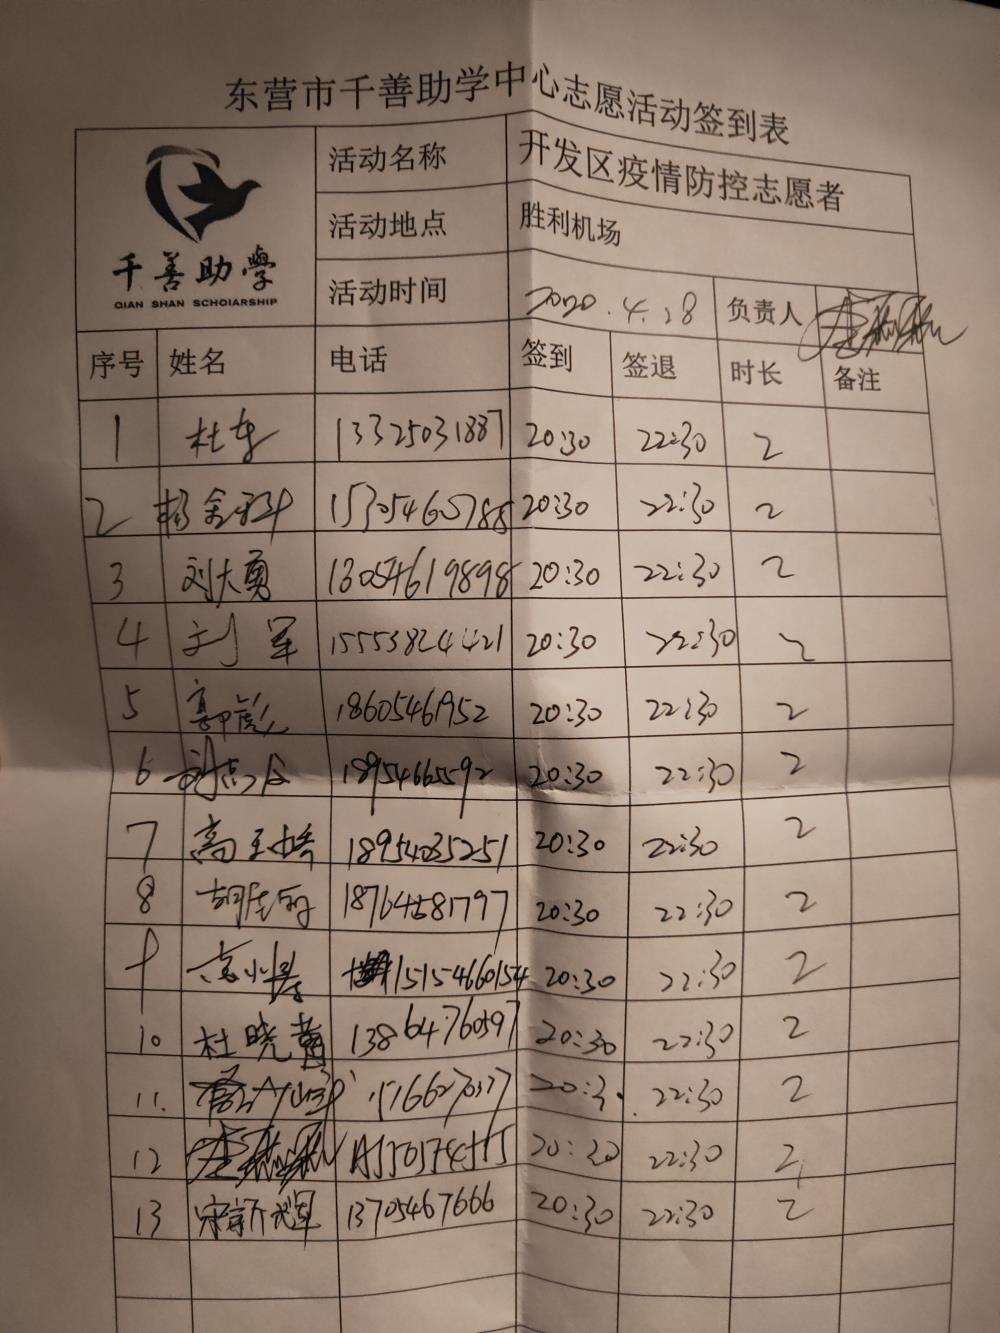 东营市千善助学中心志愿活动签到表
千善助學
QIAN SHAN SCHOIARSHIP
活动名称 开发区疫情防控志愿者
活动地点 胜利机场
活动时间 2020.4.18 负责人
序号 姓名 电话 签到 签退 时长 备注
1 杜东 13325031887 20:30 22:30 2
2 杨金科 15305460788 20:30 22:30 2
3 刘大勇 13054619898 20:30 22:30 2
4 刘军 15553824421 20:30 22:30 2
5 郭彪 18605461952 20:30 22:30 2
6 18954665592 20:30 22:30 2
7 高玉梅 18954035251 20:30 22:30 2
8 18764581797 20:30 22:30 2
9 高小涛 15154660154 20:30 22:30 2
10 杜晓菁 13864760597 20:30 22:30 2
11. 20:30. 22:30 2
12 20:30 22:30 2
13 宋新辉 13705467666 20:30 22:30 2